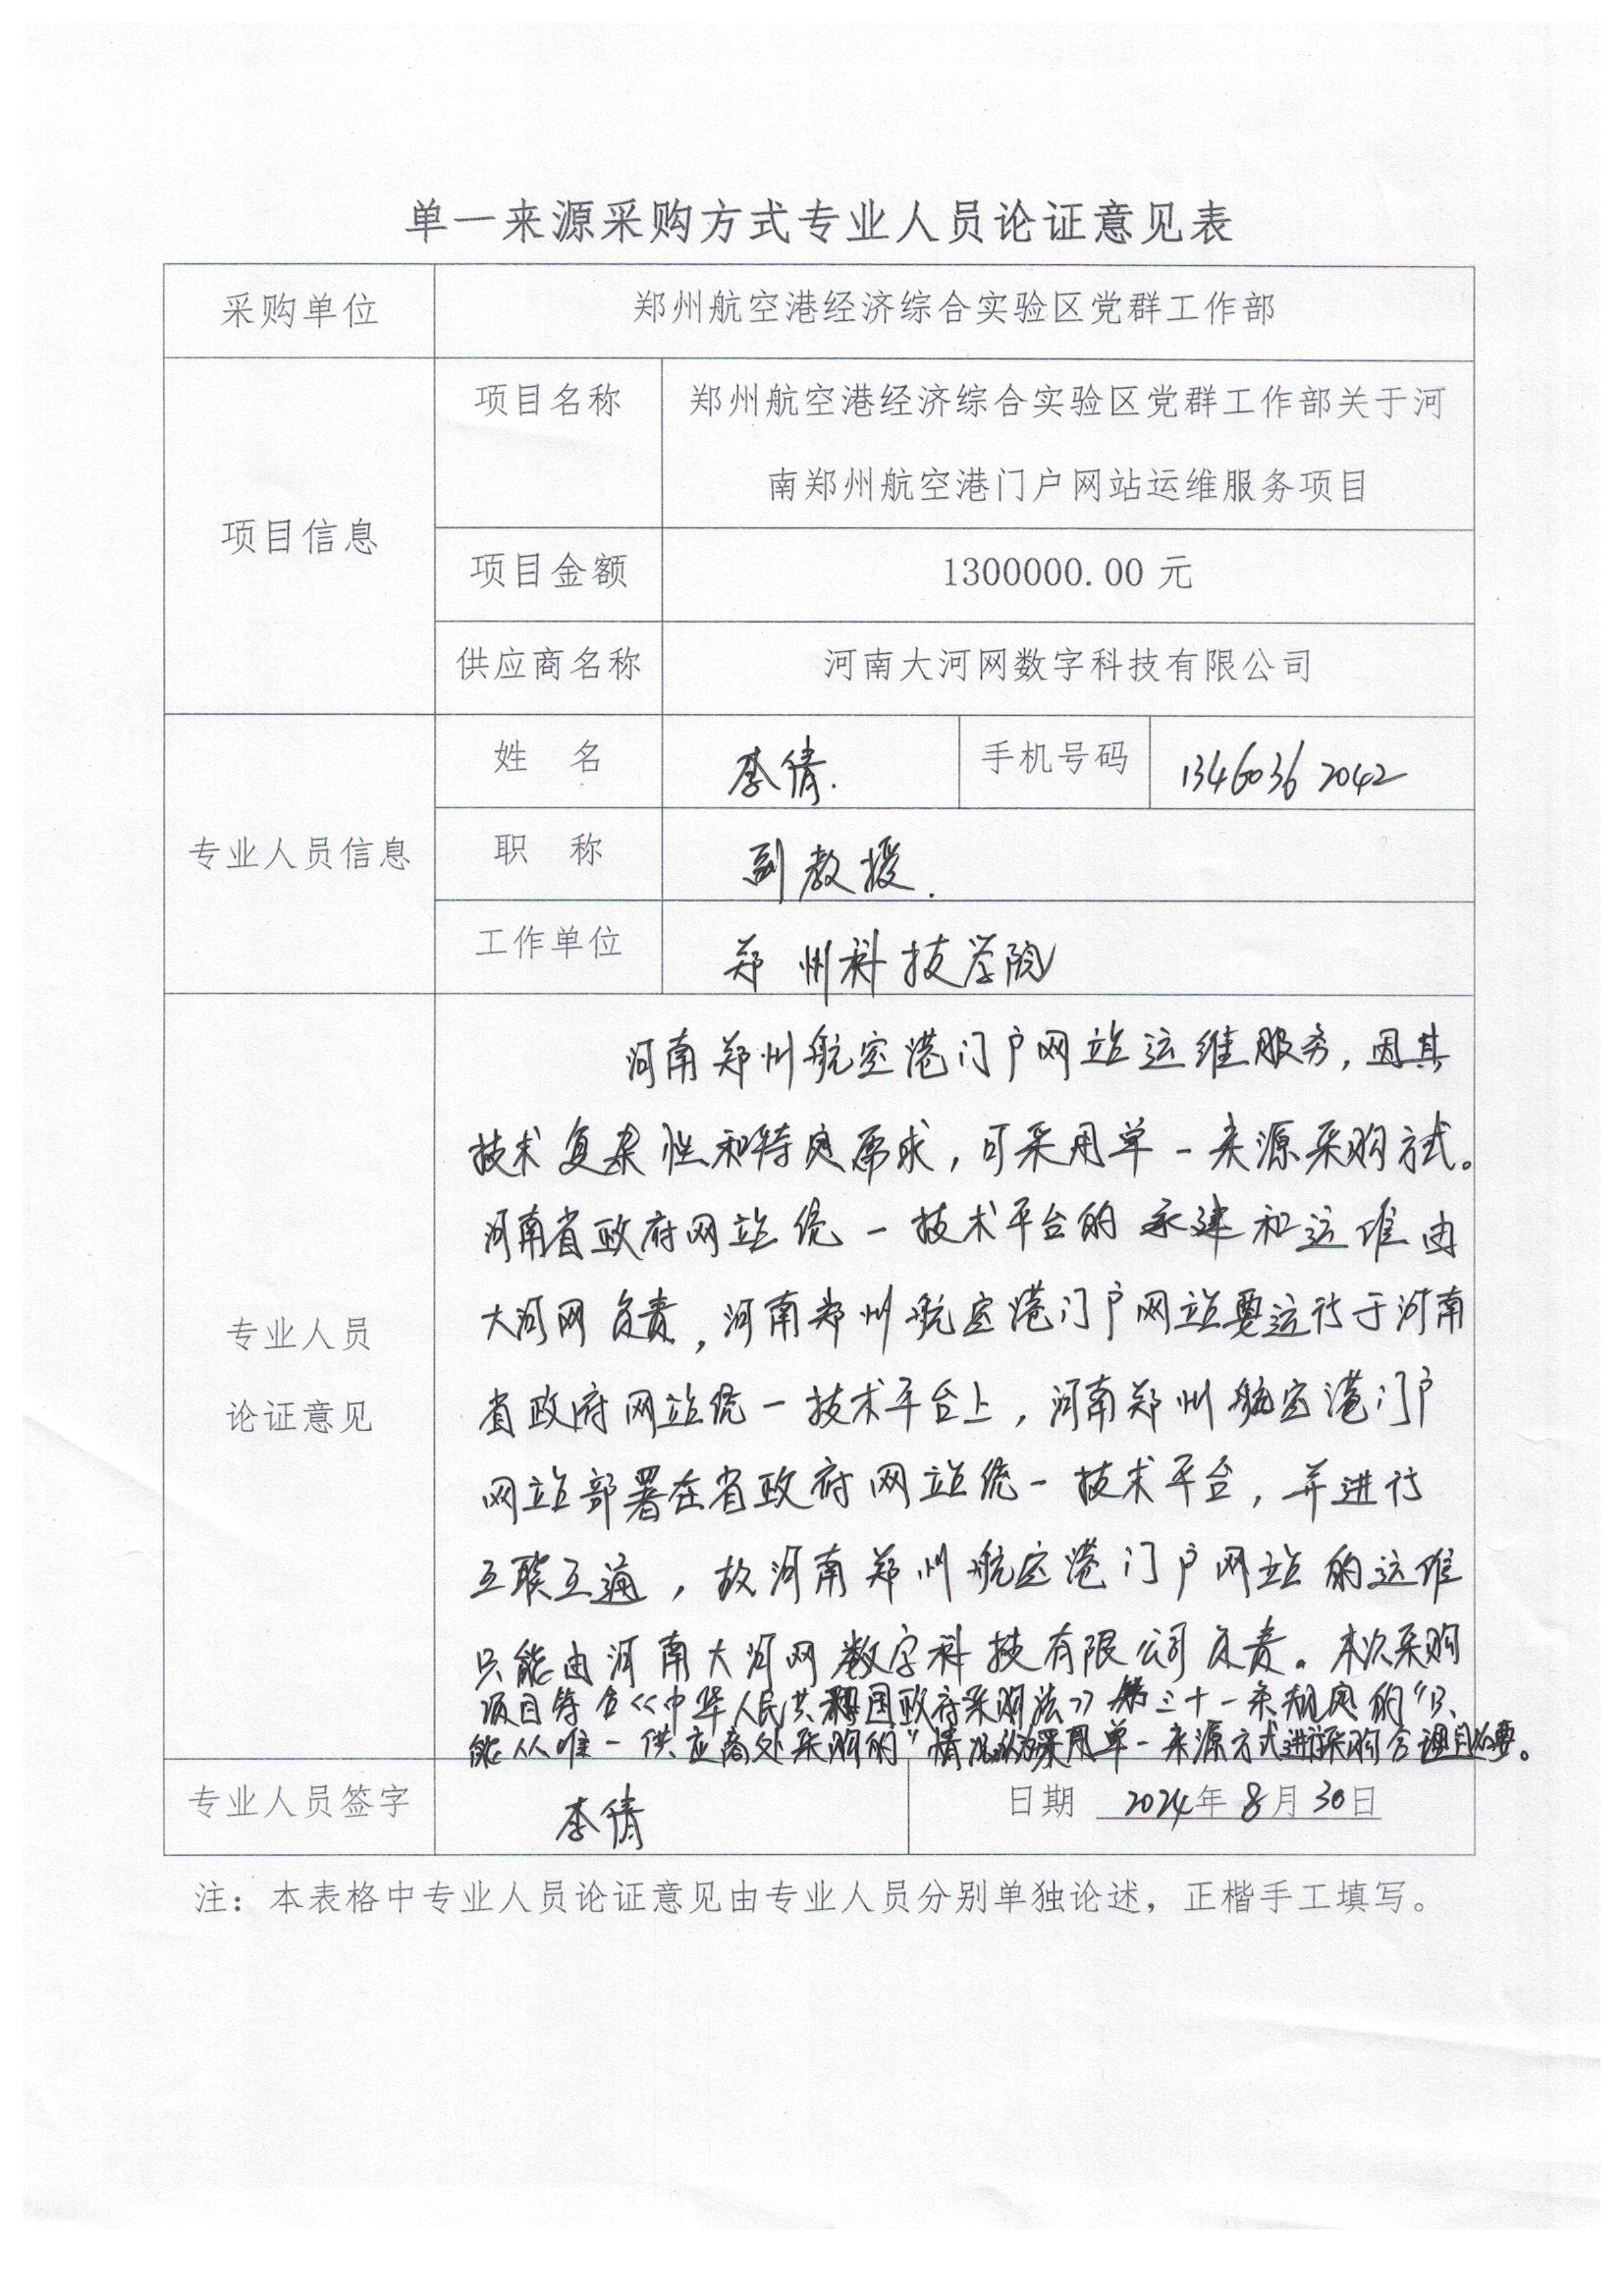 单一来源采购方式专业人员论证意见表
采购单位 郑州航空港经济综合实验区党群工作部
项目信息
项目名称 郑州航空港经济综合实验区党群工作部关于河
南郑州航空港门户网站运维服务项目
项目金额 1300000.00 元
供应商名称 河南大河网数字科技有限公司
专业人员信息
姓 名 李倩. 手机号码 13460362042
职 称 副教授.
工作单位 郑州科技学院
专业人员
论证意见
河南郑州航空港门户网站运维服务,因其
技术复杂性和特定需求,可采用单一来源采购方式。
河南省政府网站统一技术平台的承建和运维由
大河网负责,河南郑州航空港门户网站要运行于河南
省政府网站统一技术平台上,河南郑州航空港门户
网站部署在省政府网站统一技术平台,并进行
互联互通,故河南郑州航空港门户网站的运维
只能由河南大河网数字科技有限公司负责。本次采购
项目符合《中华人民共和国政府采购法》第三十一条规定的“只
能从唯一供应商处采购的”情况,认为采用单一来源方式进行采购合理且必要。
专业人员签字 李倩 日期 2024年8月30日
注：本表格中专业人员论证意见由专业人员分别单独论述，正楷手工填写。